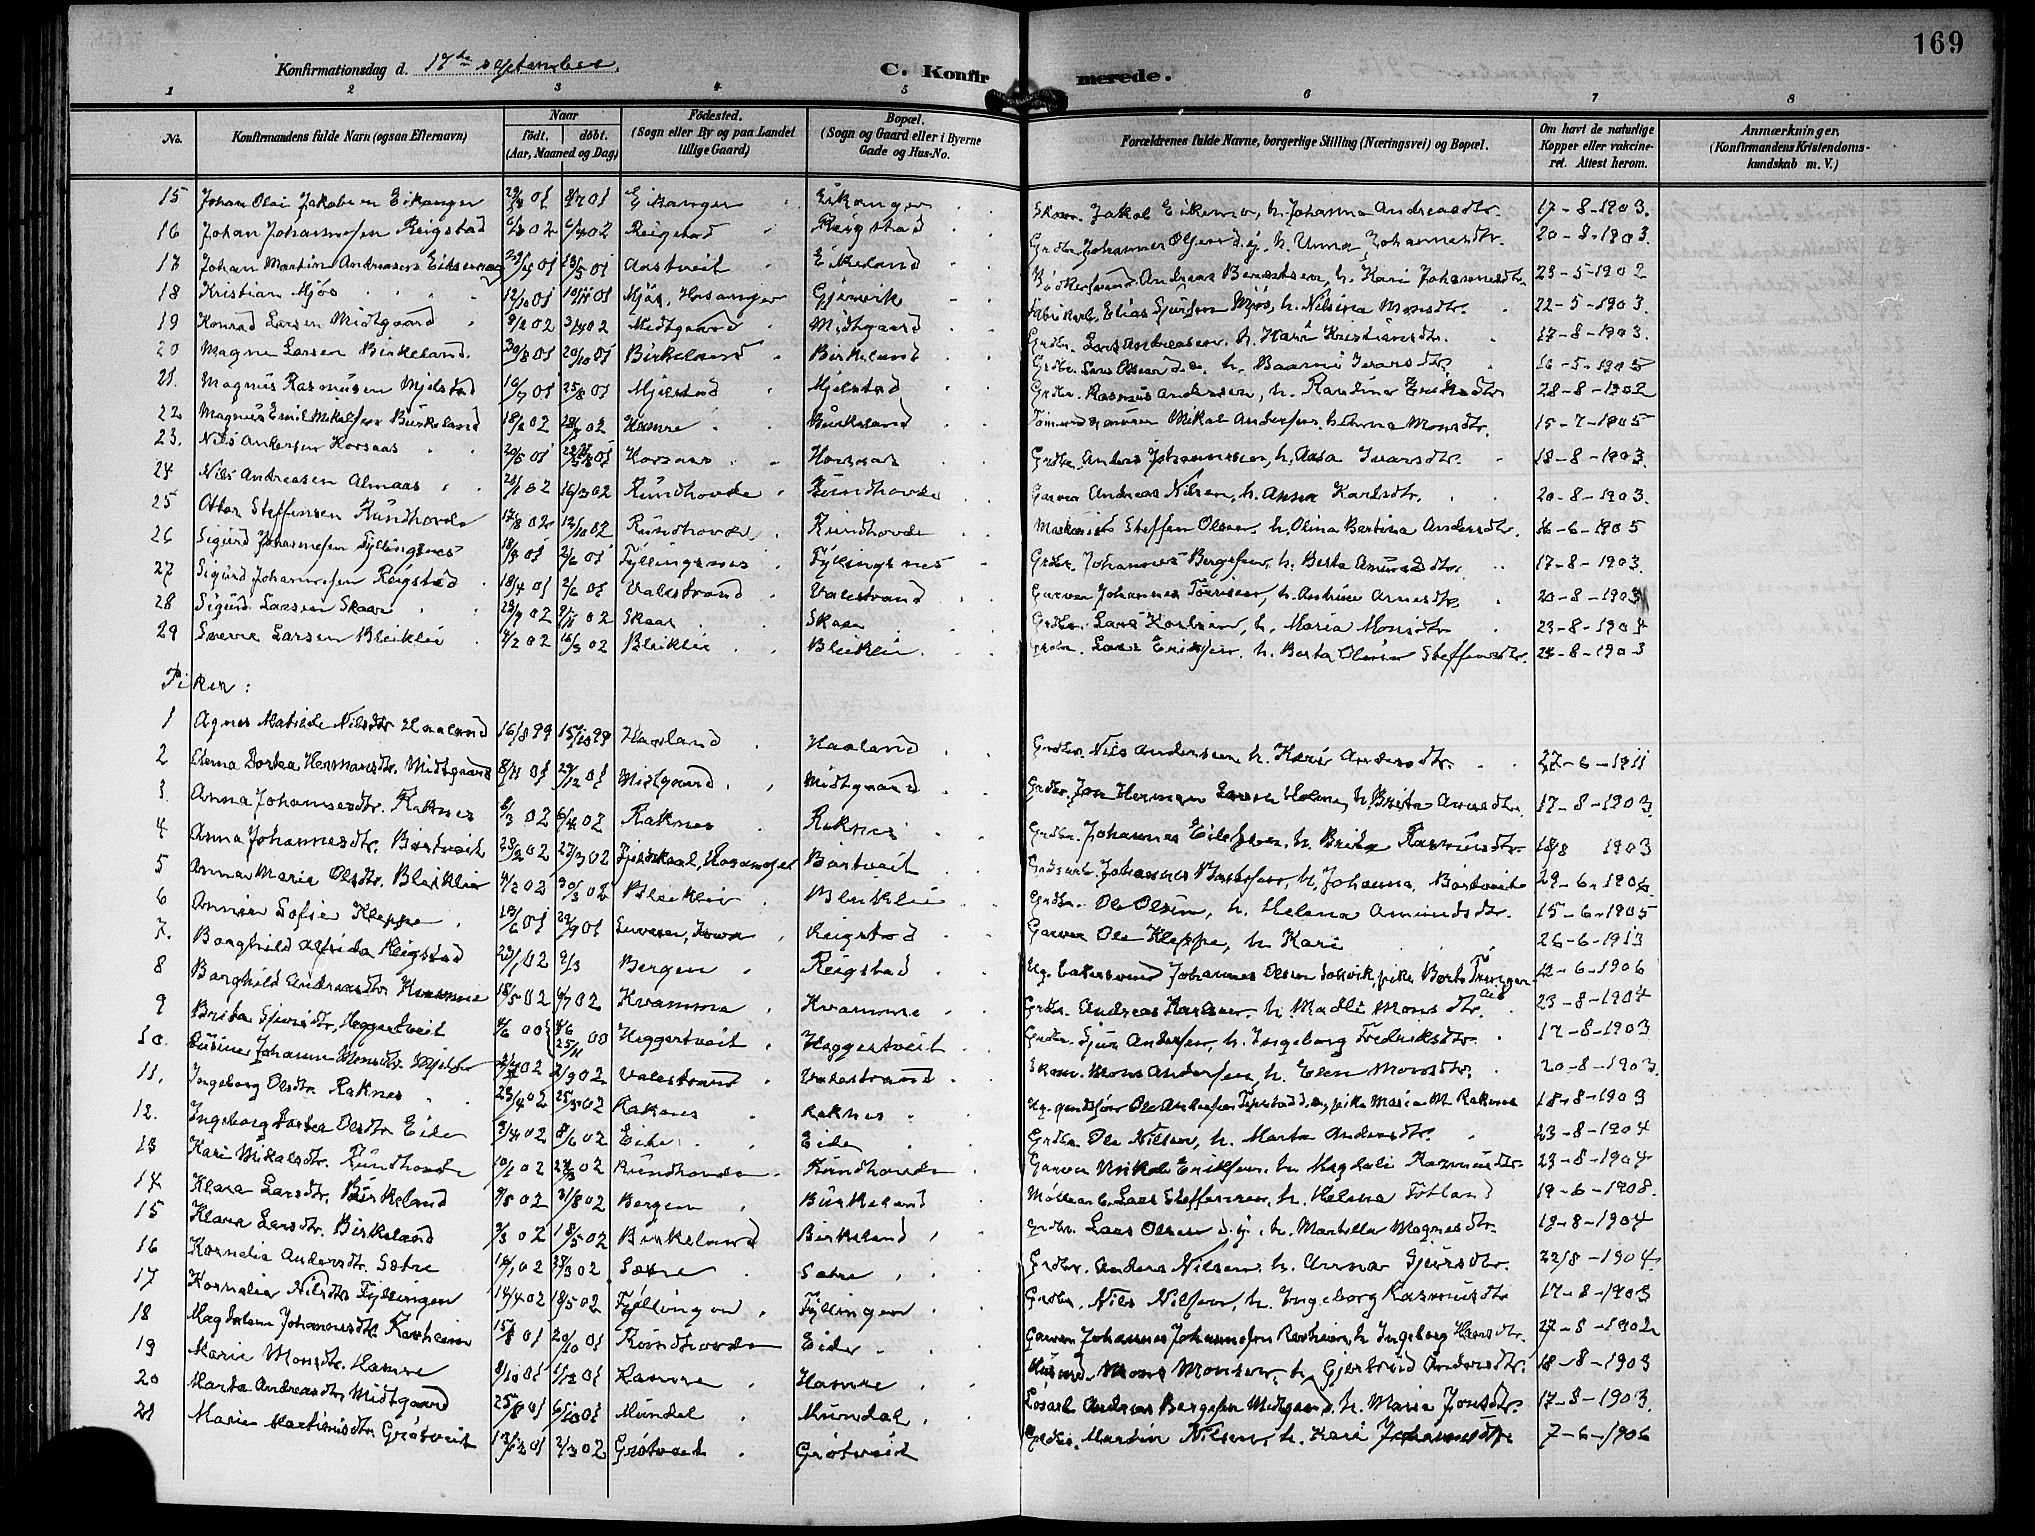 169
Konfirmationsdag d. 17de september.
C. Konfirmerede.
1 2 3 4 5 6 7 8
No. Konfirmandens fulde Navn (ogsaa Efternavn) Naar født. døbt. (Aar, Maaned og Dag) Fødested. (Sogn eller By og paa Landet tillige Gaard) Bopæl. (Sogn og Gaard eller i Byerne Gade og Hus-No. Forældrenes fulde Navne, borgerlige Stilling (Næringsvei) og Bopæl. Om havt de naturlige Kopper eller vaccineret. Attest herom. Anmærkninger, (Konfirmandens Kristendomskundskab m. V.)
15 Johan Olai Jakobsen Eikanger 01 01 Eikanger Eikanger Jakob h. Johanna Andreasdtr. 17-8-1903.
16 Johan Johannessen Reigstad 6/3 02 6/4 02 Reigstad Reigstad Grdbr. Johannes Olsen d.y. h. Unna Johannesdtr. 20-8-1903.
17 Johan Martin Andreasen 01 01 Aastveit Eikeland Andreas Berentsen, h. Kari Johannesdtr. 23-5-1902
18 Kristian Mjøs 12/10 01 01 Mjøs, Hosanger Gjervik Elias Sjursen Mjøs, h. Nilsina Monsdtr. 22-5-1903.
19 Konrad Larsen Midtgaard 9/2 02 31/4 02 Midtgaard Midtgaard Grdbr. Lars Andreassen. h. Kari Kristiansdtr. 17-8-1903.
20 Magne Larsen Birkeland. 30/8 01 20/10 01 Birkeland Birkeland Grdbr. Lars Olsen d.e. h. Baarni Ivarsdtr. 16-5-1905
21. Magnus Rasmusen Mjelstad 16/7 01 25/8 01 Mjelstad Mjelstad Grdbr. Rasmus Andersen, h. Randina 28-8-1902
22 Magnus Emil Mikalsen Birkeland 18/2 02 02 Hamre Birkeland Mikal Andersen, h. Anna Monsdtr. 15-7-1905
23. Nils Andersen Horsaas 20/5 01 01 Horsaas Horsaas Grdbr. Anders Johannessen, h. Aasa Ivarsdtr. 18-8-1903.
24 Nils Andreasen Almaas 02 16/3 02 Rundhovde Rundhovde Garver Andreas Nilsen, h. Anna Karlsdtr. 20-8-1903.
25 Otto Steffensen Rundhovde 17/8 02 12/10 02 Rundhovde Rundhovde Maskinist Steffen Olsen h. Olina Bertina Andersdtr. 16-6-1905
26 Sigurd Johannessen Fyllingsnes 01 2/6 01 Fyllingsnes Fyllingsnes Grdbr. Johannes Bergesen, h. Berta Amundsdtr. 17-8-1903.
27 Sigurd Johannessen Reigstad 18/4 01 2/6 01 Valestrand Valestrand Garver Johannes h. Andrine Arnesdtr 20-8-1903
28 Sigurd Larsen Skaar 02 02 Skaar Skaar Grdbr. Lars Karlsen, h. Maria Monsdtr 23-8-1904
29 Sverre Larsen Bleiklie 02 16/3 02 Bleiklie Bleiklie Grdbr. Lars Eriksen. h. Berta Olina Steffensdtr. 24-8-1903
Piker:
1 Agnes Matilde Nilsdtr Haaland 16/8 99 15/10 99 Haaland Haaland Grdbr. Nils Andersen h. Kari Andersdtr. 27-6-1911
2 Dortea Hermansdtr. Midtgaard 8/11 01 29/12 01 Midtgaard Midtgaard Grdbr. Jon Herman Larsen Holme, h. Brita 17-8-1903.
3. Anna Johannesdtr. Raknes 6/3 02 6/4 02 Raknes Raknes Grdbr. Johannes h. Brita Rasmusdtr 18/8 1903
4 Anna Johannesdtr. Børtveit 02 02 Fjeldskaal, Hosanger Børtveit Johannes h. Johanna Børtveit 29-6-1906.
5 Anna Maria Olsdtr. Bleiklie 02 30/3 02 Bleiklie Bleiklie Grdbr. Ole Olsen, h. Helena Amundsdtr. 15-6-1905
6 Sofie Kleppe 01 29/9 01 Reigstad Garver Ole Kleppe, h. Kari 26-6-1913
7. Borghild Alfrida Reigstad 23/1 02 9/3 Bergen Reigstad Johannes Olsen pike 12-6-1906
8 Borghild Andreasdtr Kvamme 18/5 02 6/7 02 Kvamme Kvamme Grdbr. Andreas h. Madli Monsdtr. 23-8-1904
9 Brita Sjursdtr. Heggertveit 00 25/11 00 Heggertveit Heggertveit Grdbr. Sjur Andersen, h. Ingeborg Fredriksdtr. 17-8-1903
10. Johanne Monsdtr. 02 02 Valestrand Valestrand Mons Andersen, h. Elen Monsdtr. 20-8-1903.
11. Ingeborg Olsdtr. Raknes 23/4 02 02 Raknes Raknes pike Maria M. Raknes 18-8-1903
12. Ingeborg Olsdtr. Eide 3/4 02 8/6 02 Eide Eide Grdbr. Ole Nilsen, h. Marta Andersdtr. 23-8-1904
13 Kari Mikalsdtr. Rundhovde 10/1 02 02 Rundhovde Rundhovde Garver Mikal Eriksen, h. Magdali Rasmusdtr. 23-8-1904
14 Klara Larsdtr. Birkeland 9/5 02 31/8 02 Bergen Birkeland Lars Steffensen, h. Helena Totland 19-6-1908.
15 Klara Larsdtr. Birkeland 02 18/5 02 Birkeland Birkeland Grdbr. Lars Olsen d.y. h. Martella Magnesdtr. 19-8-1904
16 Kornelia Andersdtr. Sætre 02 02 Sætre Sætre Grdbr. Anders Nilsen h. Anna Sjursdtr. 22/8-1904.
17 Kornelia Nilsdtr Fyllingen 14/4 02 18/5 02 Fyllingen Fyllingen Grdbr. Nils Nilsen, h. Ingeborg Rasmusdtr 17-8-1903
18 Magdalena Johannesdtr. 01 20/10 01 Rundhovde Eide Garver Johannes Johannessen h. Ingeborg Hansdtr. 27-5-1902
19 Marie Monsdtr. Hamre 8/10 01 01 Hamre Hamre Mons Monsen, h. Gjertrud Andersdtr. 18-8-1903
20 Marta Andreasdtr Midtgaard 25/8 01 6/10 01 Mundal Mundal Andreas Bergesen Midtgaard. h. Maria Jonsdtr. 17-8-1903.
21 Marie Martinusdtr. Grøtveit 01 2/3 02 Grøtveit Grøtveit Grdbr. Martin Nilsen, h. Kari Johannesdtr 7-6-1906